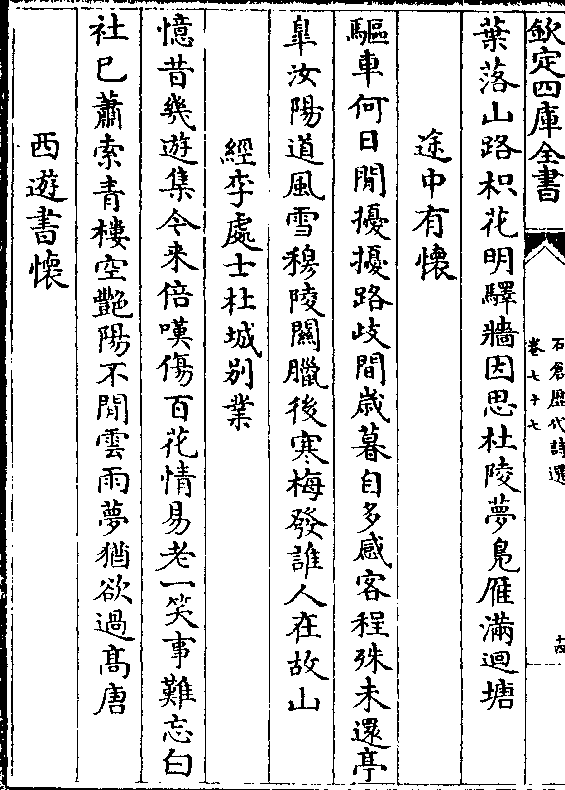 欽定四庫全書
石倉歷代詩選
卷七十七
十四
葉落山路枳花明驛牆因思杜陵夢鳬雁滿迴塘
途中有懷
驅車何日閒擾擾路歧間歲暮自多感客程殊未還亭
臯汝陽道風雪穆陵關臘後寒梅發誰人在故山
經李處士杜城别業
憶昔幾遊集今来倍嘆傷百花情易老一笑事難忘白
社已蕭索青樓空艷陽不閒雲雨夢猶欲過髙唐
西遊書懷